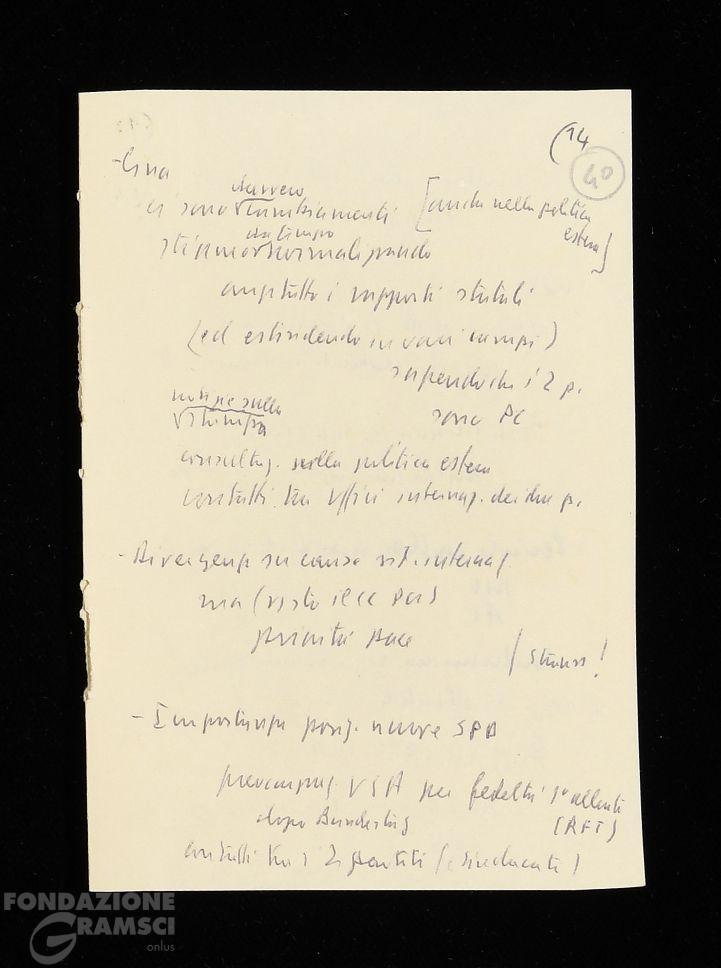 (14
40
- Cina
davvero
ci sono √ cambiamenti [anche nella politica
estera]
da tempo
stiamo √ normalizzando
anzitutto i rapporti statali
(ed estendendo in vari campi)
sapendo che i 2 p.
sono PC
notizie sulla
√ stampa
consultaz. sulla politica estera
contatti tra Uffici internaz. dei due p.
- Divergenze su cause sit. internaz.
ma (visto il CC PCUS)
priorità pace
(Strauss!
- Importanza posiz. nuove SPD
preoccupaz. USA per fedeltà 1° alleato
dopo Bundestag (RFT)
contatti tra i 2 partiti (e sindacati)
FONDAZIONE
GRAMSCI
onlus